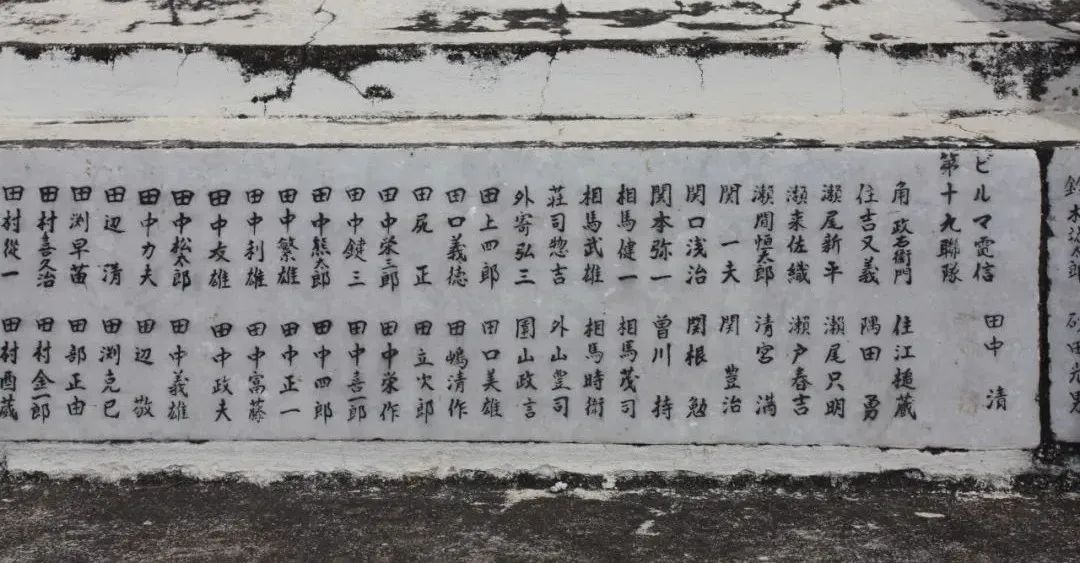 ビルマ電信 田中 清
第十九聯隊
角 政右衛門 住江槌蔵
住吉又義 隅田 勇
瀬尾新平 瀬尾只明
瀬来佐織 瀬戸春吉
瀬間恒太郎 清宮 満
関 一夫 関 豊治
関口浅治 関根 勉
関本弥一 曽川 持
相馬健一 相馬茂司
相馬武雄 相馬時衛
荘司惣吉 外山豊司
外寄弘三 園山政言
田上四郎 田口美雄
田口義徳 田嶋清作
田尻 正 田立次郎
田中栄二郎 田中栄作
田中鍵三 田中喜一郎
田中熊次郎 田中四郎
田中繁雄 田中正一
田中利雄 田中富藤
田中友雄 田中政夫
田中松太郎 田中義雄
田中力夫 田辺 敬
田辺 清 田渕克巳
田渕早苗 田部正由
田村喜久治 田村金一郎
田村從一 田村酉蔵